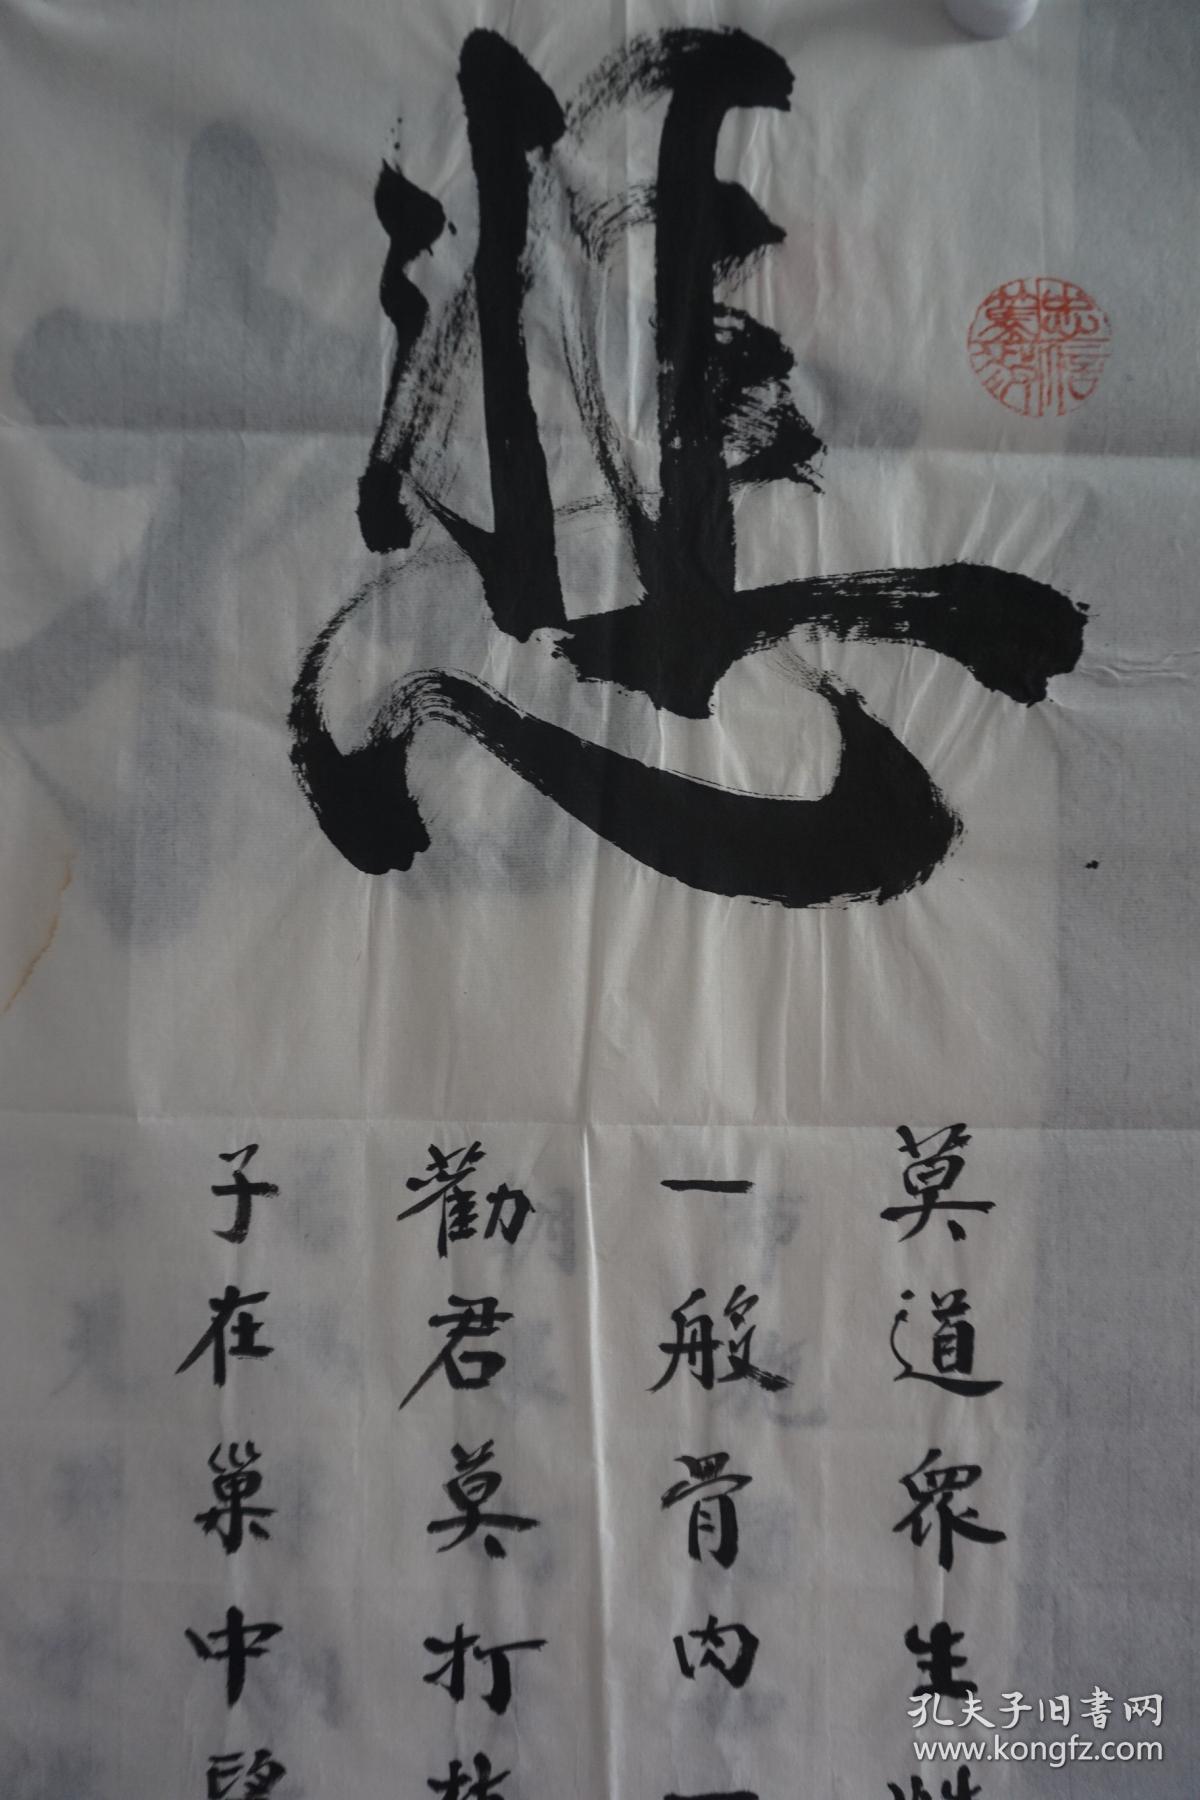 悲
莫道眾生
一般骨肉一
勸君莫打枝
子在巢中望
孔夫子旧书网
www.kongfz.com